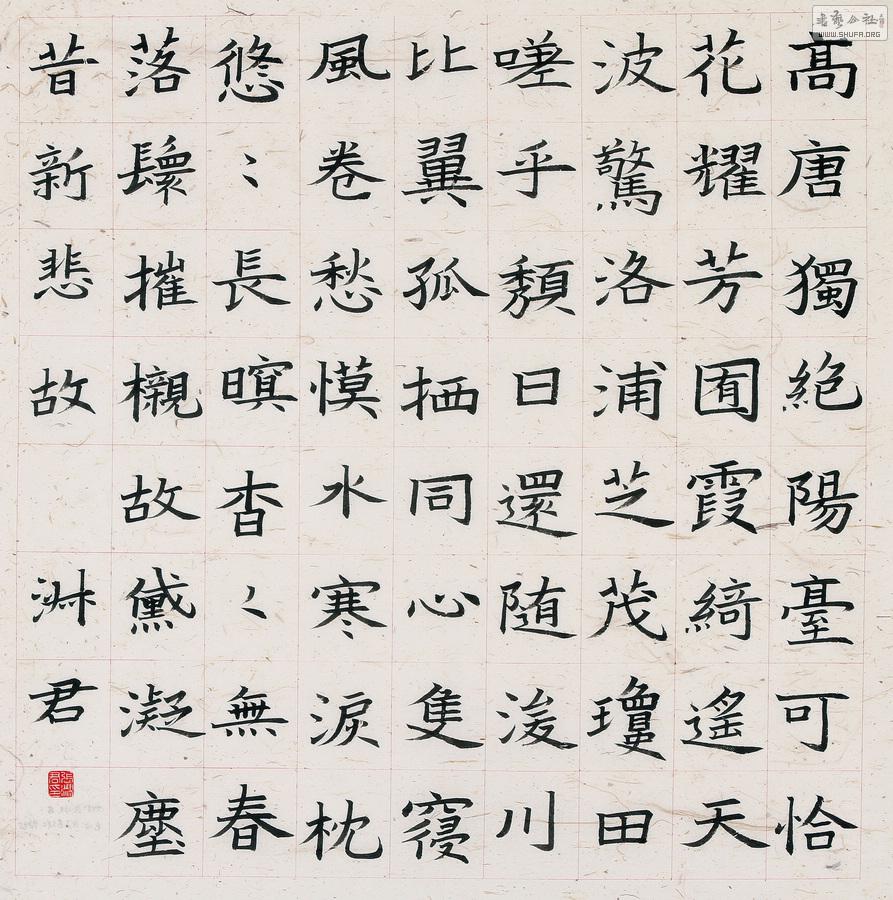 高唐獨絶陽臺可恰
花耀芳囿霞綺遙天
波驚洛浦芝茂瓊田
嗟乎頽日還随浚川
比翼孤栖同心隻寑
風卷愁慔水寒淚枕
悠〻長暝杳〻無春
落鬟摧櫬故黛凝塵
昔新悲故 淋君
書藝公社
WWW.SHUFA.ORG